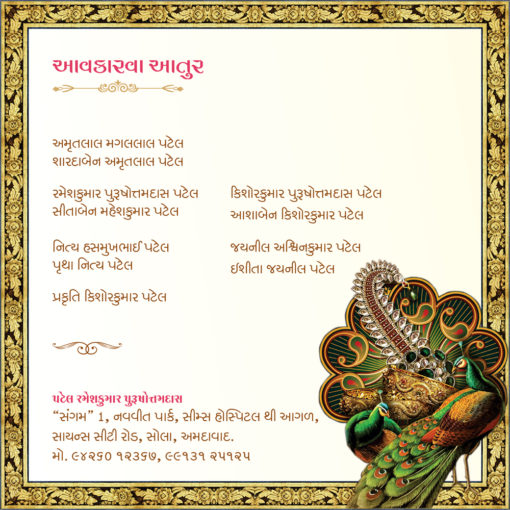 આવકારવા આતુર
અમૃતલાલ મગલલાલ પટેલ
શારદાબેન અમૃતલાલ પટેલ
રમેશકુમાર પુરૂષોત્તમદાસ પટેલ
સીતાબેન મહેશકુમાર પટેલ
કિશોરકુમાર પુરૂષોત્તમદાસ પટેલ
આશાબેન કિશોરકુમાર પટેલ
નિત્ય હસમુખભાઈ પટેલ
પૃથા નિત્ય પટેલ
જયનીલ અશ્વિનકુમાર પટેલ
ઈશીતા જયનીલ પટેલ
પ્રકૃતિ કિશોરકુમાર પટેલ
પટેલ રમેશકુમાર પુરૂષોત્તમદાસ
“સંગમ” 1, નવવીત પાર્ક, સીમ્સ હોસ્પિટલ થી આગળ,
સાયન્સ સીટી રોડ, સોલા, અમદાવાદ.
મો. ૯૪૨૬૦ ૧૨૩૬૭, ૯૯૧૩૧ ૨૫૧૨૫